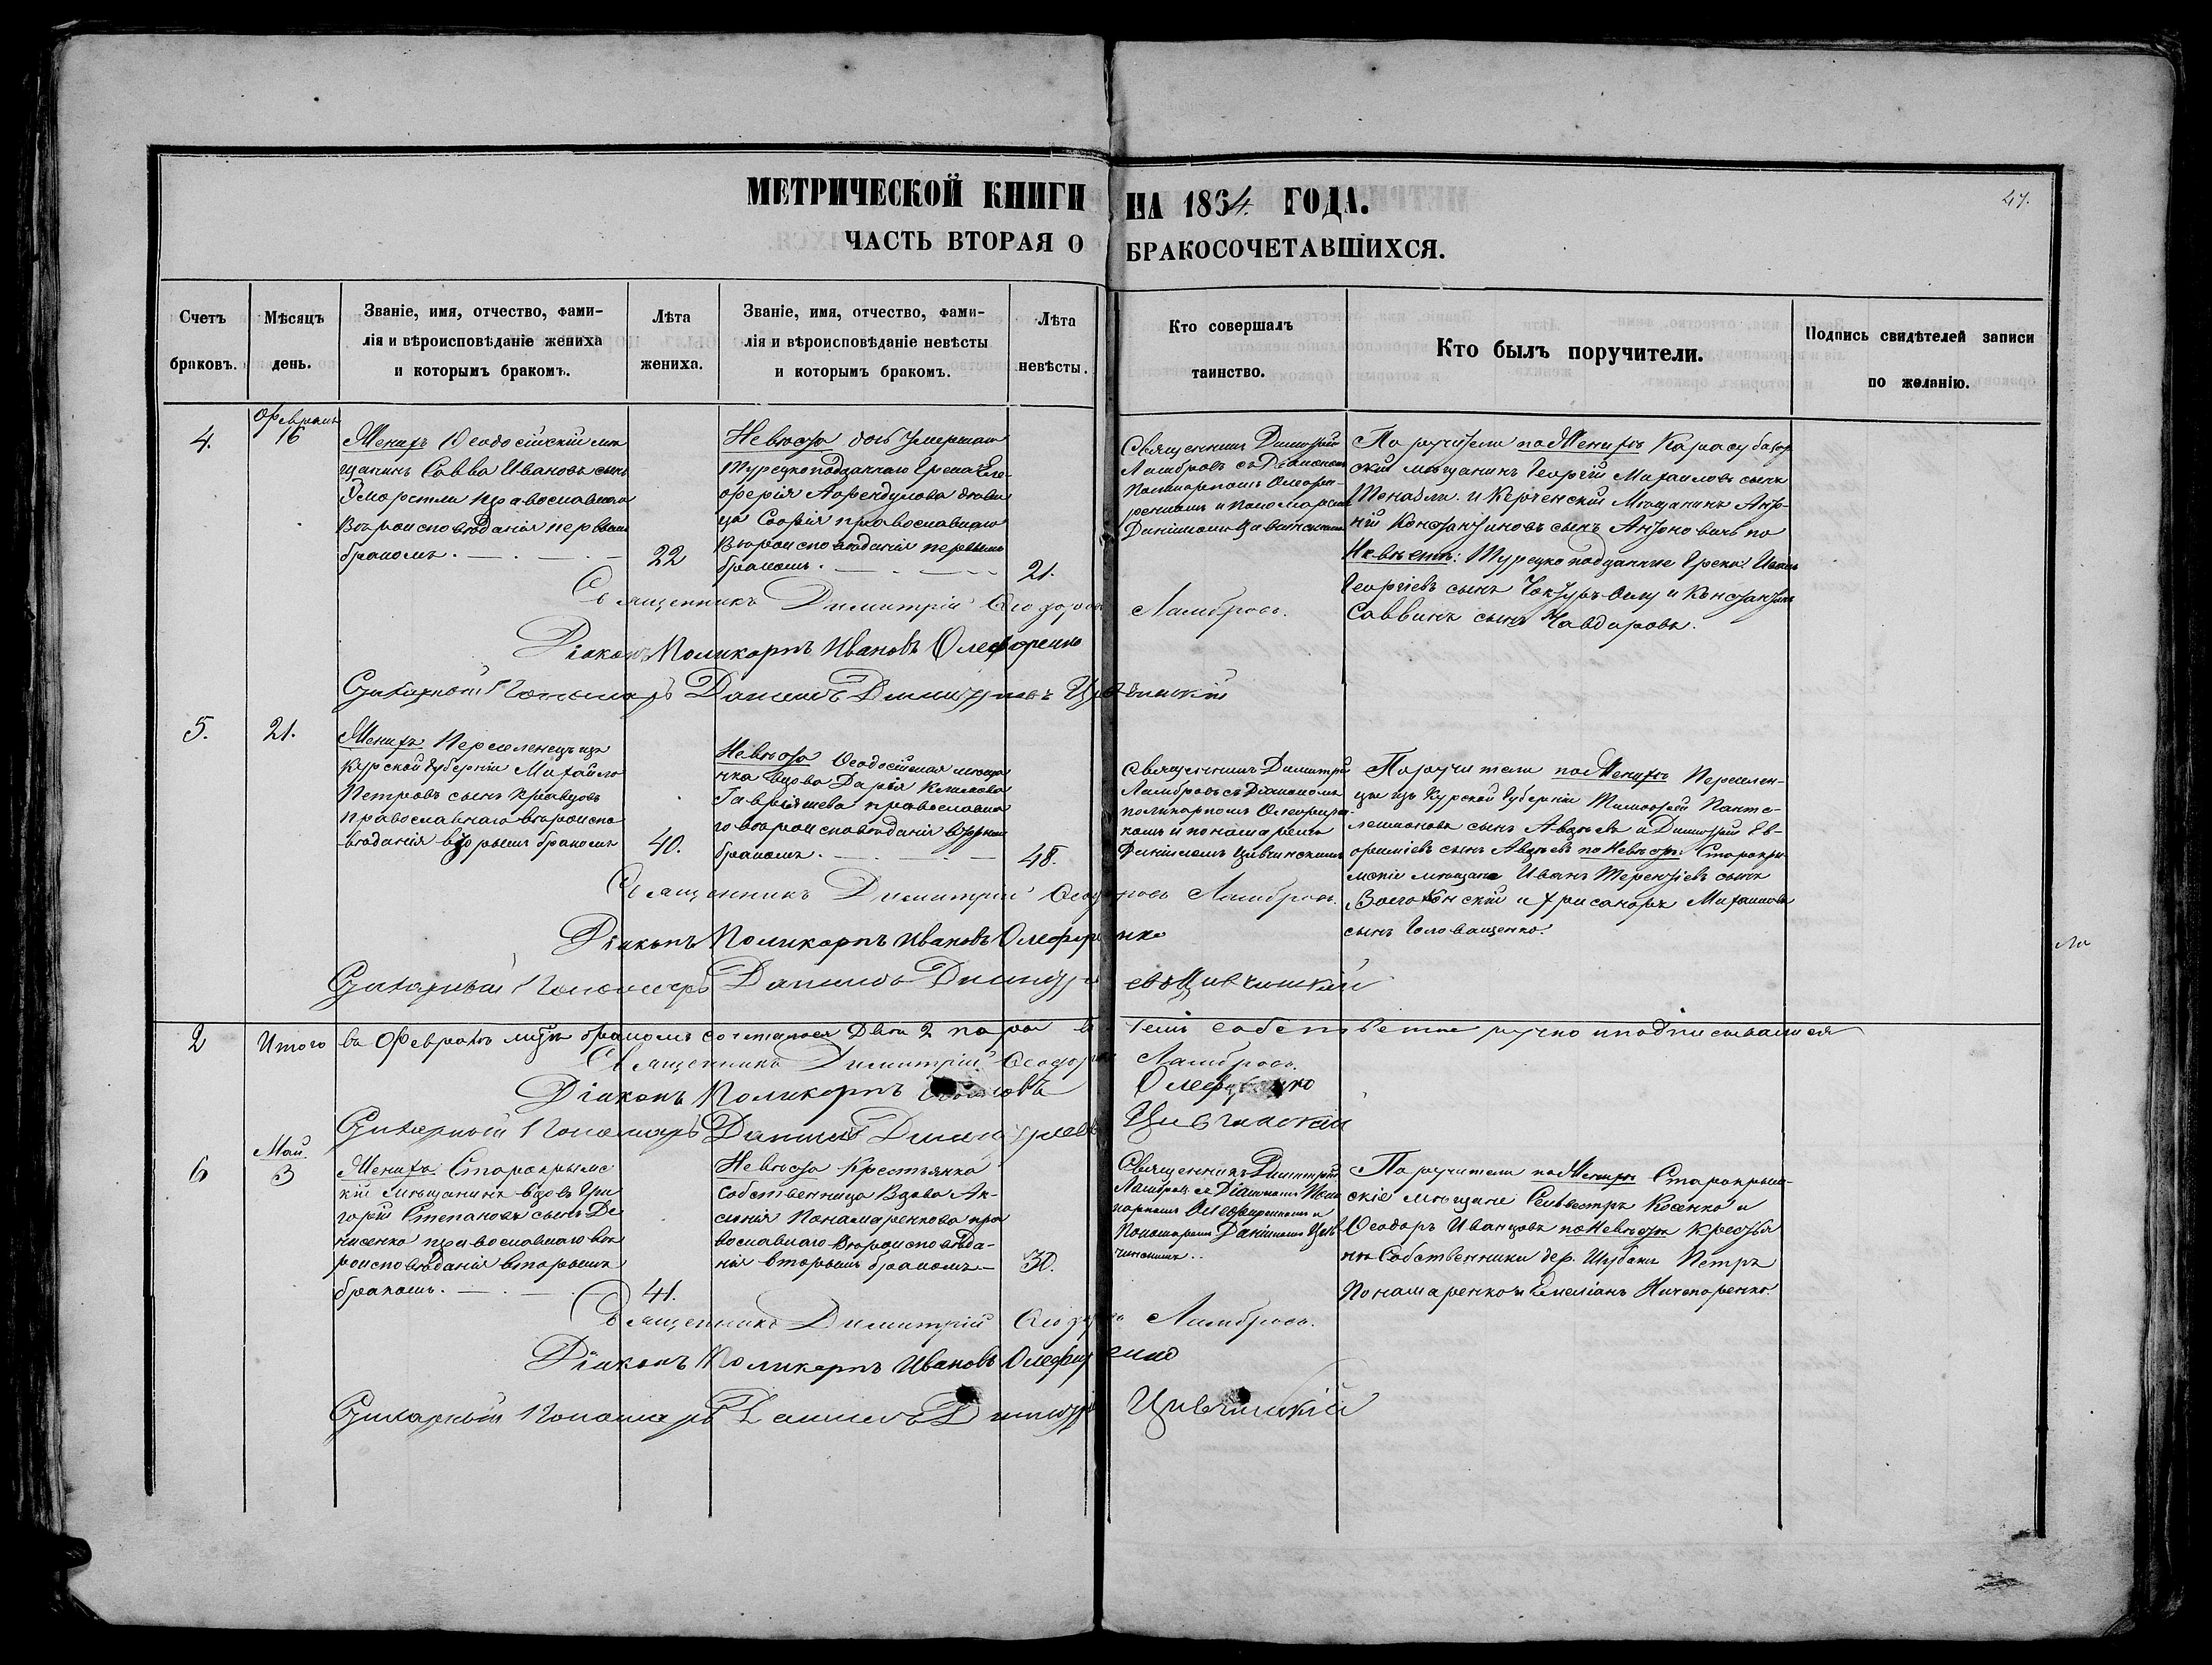 МЕТРИЧЕСКОЙ КНИГИ НА 1864 ГОДА.
47.
ЧАСТЬ ВТОРАЯ О БРАКОСОЧЕТАВШИХСЯ.
Счетъ браковъ.
Мѣсяцъ день.
Званіе, имя, отчество, фами-
лія и вѣроисповѣданіе жениха
и которымъ бракомъ.
Лѣта жениха.
Званіе, имя, отчество, фами-
лія и вѣроисповѣданіе невѣсты
и которымъ бракомъ.
Лѣта невѣсты.
Кто совершалъ таинство.
Кто былъ поручители.
Подпись свидѣтелей записи
по желанію.
4.
Февраль
16
Женихъ Ѳеодосійскій мѣ
щанинъ Савва Ивановъ сынъ
православнаго
Вѣроисповѣданія первымъ
бракомъ.
22
Невѣста дочь умершаго
Турецкоподданнаго Грека Еле
ферія дѣви
ца Софія православнаго
Вѣроисповѣданія первымъ
бракомъ.
21.
Священникъ Димитрій
Ламбровъ съ Діакономъ
Поликарпомъ Олефи-
ренкомъ и Пономаремъ
Даніиломъ Цивчинскимъ
Поручители по Женихѣ Карасубазар
скій мѣщанинъ Георгій Михаиловъ сынъ
и Керченскій Мѣщанинъ Анто-
ній Константиновъ сынъ Антоновичъ по
Невѣстѣ: Турецкоподданные Греки: Иванъ
Георгіевъ сынъ и Константинъ
Саввинъ сынъ Чавдаровъ.
Священникъ Димитрій Ѳеодоровъ Ламбровъ.
Діаконъ Поликарпъ Ивановъ Олефоренко
Стихарный Пономарь Даніилъ Димитріевъ Цивчинскій
5.
21.
Женихъ Переселенецъ изъ
Курской Губерніи Михаилъ
Петровъ сынъ Кравцовъ
православнаго вѣроиспо
вѣданія вторымъ бракомъ
40.
Невѣста Ѳеодосійская мѣща
нка Вдова Дарья
Гавріишева православна
го вѣроисповѣданія вторымъ
бракомъ.
48.
Священникъ Димитрій
Ламбровъ съ Діакономъ
поликарпомъ Олефирен
комъ и пономаремъ
Даніиломъ Цивчинскимъ
Поручители по Женихѣ Переселен-
цы изъ Курской Губерніи Тимофей Панте-
леимоновъ сынъ Авдѣевъ и Димитрій Ев-
фиміевъ сынъ Авдѣевъ по Невѣстѣ: Старокры-
мскіе мѣщане Иванъ Терентіевъ сынъ
и Хрисанфъ Михаиловъ
сынъ Головащенко.
Священникъ Димитрій Ѳеодоровъ Ламбровъ.
Діаконъ Поликарпъ Ивановъ Олефиренко
Стихарный Пономарь Даніилъ Димитріевъ Цивчинскій
2 Итого въ Февралѣ мцѣ бракомъ сочеталось Двѣ 2 пары въ чемъ собственноручно и подписываемся
Священникъ Димитрій Ѳеодоровъ Ламбровъ.
Діаконъ Поликарпъ Ивановъ Олефиренко
Стихарный Пономарь Даніилъ Димитріевъ Цивчинскій
6
Май
3
Женихъ Старокрымс
кій мѣщанинъ вдовъ Гри
горій Степановъ сынъ Де
нисенко православнаго вѣ
роисповѣданія вторымъ
бракомъ.
41.
Невѣста Крестьянка
Собственница Вдова Ак-
синія Понамаренкова пра
вославнаго Вѣроисповѣда-
нія вторымъ бракомъ
30.
Священникъ Димитрій
Ламбровъ съ Діакономъ Поли
карпомъ Олефиренкомъ и
Пономаремъ Даніиломъ Цив
чинскимъ.
Поручители по Женихѣ Старокрым-
скіе мѣщане Сельвестръ Косенко и
Ѳеодоръ Иванцовъ по Невѣстѣ Кресть
яне Собственники дер. Шубаки Петръ
Понамаренко и Емеліанъ Ничепоренко.
Священникъ Димитрій Ѳеодоровъ Ламбровъ.
Діаконъ Поликарпъ Ивановъ Олефиренко
Стихарный Пономарь Даніилъ Димитріевъ Цивчинскій